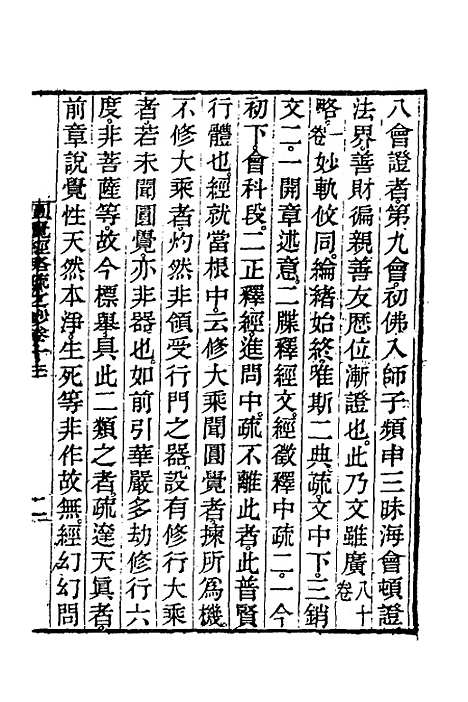 八會證者。第九會。初佛入師子頻申三昧海會頓證
法界善財徧親善友歷位漸證也。此乃文雖廣八十卷
略一卷。妙軌攸同。綸緒始終。唯斯二典。疏文中下。三銷
文二。一開章述意。二牒釋經文。經徵釋中疏二。一今
初下。會科段。二正釋經進問中。疏不離此者。此普賢
行體也。經就當根中。云修大乘聞圓覺者。揀所爲機。
不修大乘者。灼然非領受行門之器。設有修行大乘
者。若未聞圓覺。亦非器也。如前引華嚴多劫修行六
度。非菩薩等。故今標舉具此二類之者。疏達天眞者。
前章說覺性天然本淨。生死等非作故無。經幻幻問
圓覺經略疏之鈔卷十三
二